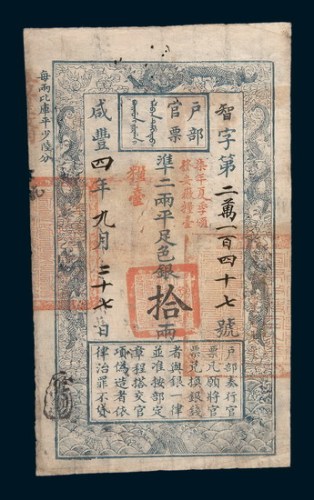 戶部
官票
智字第二萬一百四十七號
準二兩平足色銀拾兩
咸豐四年九月二十七日
每兩比庫平少陸分
糧臺
戶部奏行官
票凡願將官
票兌換銀錢
者與銀一律
並准按部定
章程搭交官
項偽造者依
律治罪不貸